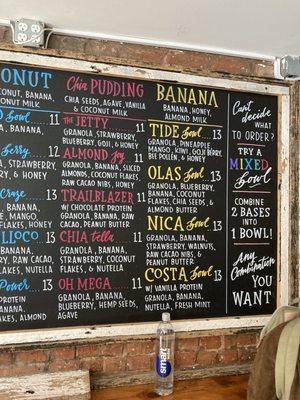 CONUT
COCONUT, BANANA,
COCONUT MILK
Bowl
Berry
Craze
LOCO 13
Power 13
Chia PUDDING
CHIA SEEDS, AGAVE, VANILLA
& COCONUT MILK
THE JETTY 11
GRANOLA, STRAWBERRY,
BLUEBERRY, GOJI, & HONEY
ALMOND Joy 11
GRANOLA, BANANA, SLICED
ALMONDS, COCONUT FLAKES,
RAW CACAO NIBS, HONEY
TRAILBLAZER 11
W/ CHOCOLATE PROTEIN
GRANOLA, BANANA, RAW
CACAO, PEANUT BUTTER
CHIA fella 11
GRANOLA, BANANA,
STRAWBERRY, COCONUT
FLAKES, & NUTELLA
OH MEGA 11
GRANOLA, BANANA,
BLUEBERRY, HEMP SEEDS,
AGAVE
BANANA
BANANA, HONEY,
ALMOND MILK
TIDE Bowl 13
GRANOLA, PINEAPPLE
MANGO, KIWI, GOJI BERRY
BEE POLLEN, & HONEY
OLAS Bowl 13
GRANOLA, BLUEBERRY,
BANANA, COCONUT
FLAKES, CHIA SEEDS, &
ALMOND BUTTER
NICA Bowl 13
GRANOLA, BANANA,
STRAWBERRY, WALNUTS,
RAW CACAO NIBS, &
PEANUT BUTTER
COSTA Bowl 13
W/ VANILLA PROTEIN
GRANOLA, BANANA,
NUTELLA, FRESH MINT
Can't decide
WHAT
TO ORDER?
TRY A
MIXED
Bowl
COMBINE
2 BASES
INTO
1 BOWL!
Any
Combination
YOU
WANT
smart